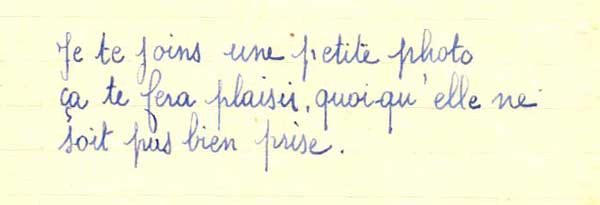 Je te joins une petite photo
ça te fera plaisir, quoi-qu'elle ne
soit pas bien prise.